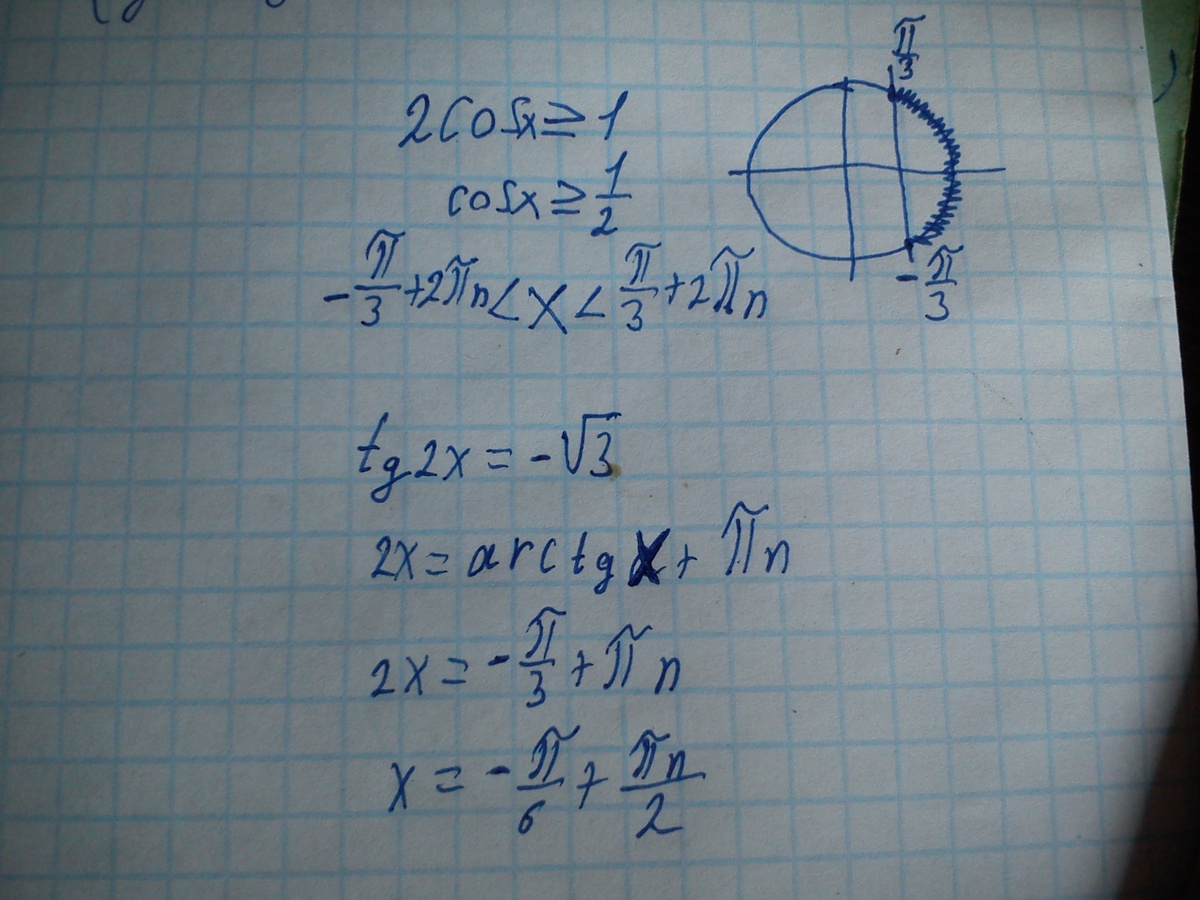 2cosx ≥ 1
cosx ≥ 1/2
-π/3 + 2πn < x < π/3 + 2πn
π/3
-π/3
tg2x = -√3
2x = arctg x + πn
2x = -π/3 + πn
x = -π/6 + πn/2